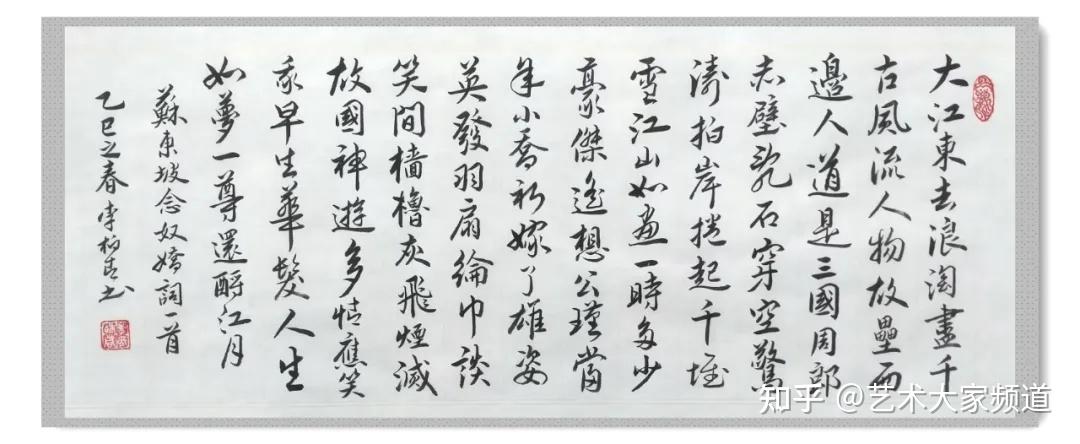 大江東去浪淘盡千
古風流人物故壘西
邊人道是三國周郎
赤壁亂石穿空驚
濤拍岸捲起千堆
雪江山如畫一時多少
豪傑遙想公瑾當
年小喬初嫁了雄姿
英發羽扇綸巾談
笑間檣櫓灰飛煙滅
故國神遊多情應笑
我早生華髮人生
如夢一尊還酹江月
蘇東坡念奴嬌詞一首
乙巳之春李
知乎 @艺术大家频道